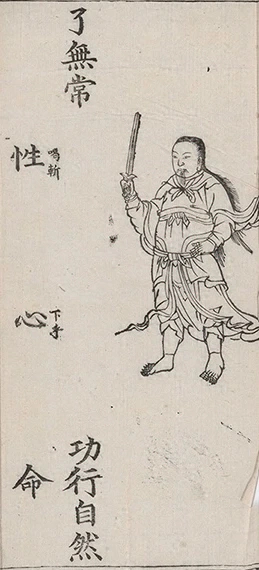 了無常
斬
性
下手
心
功行自然
命